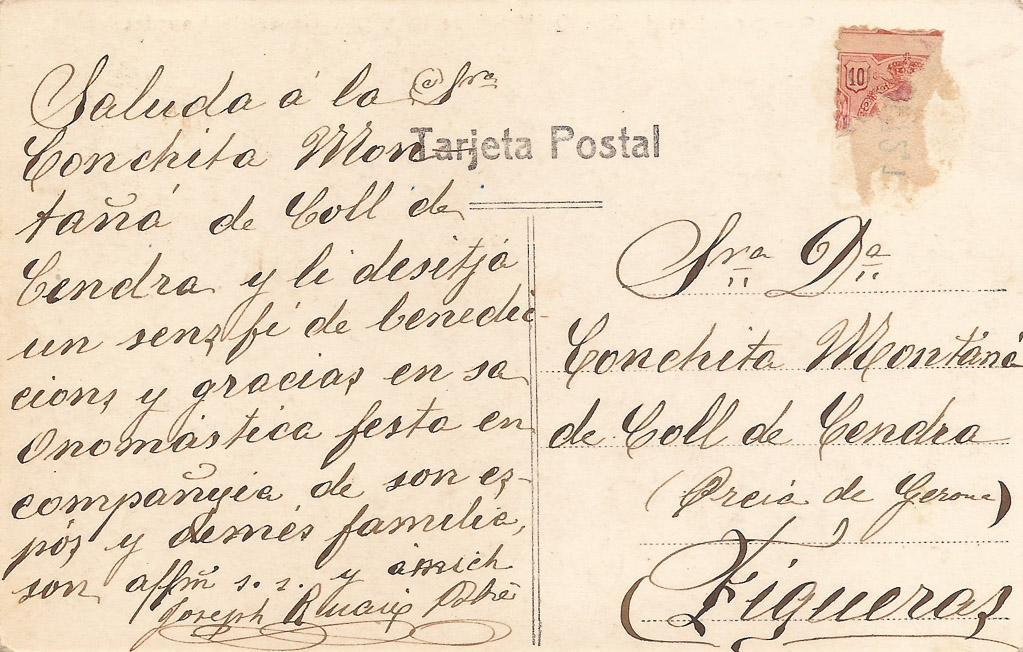 Saluda á la Sra
Conchita Mon-
tañá de Coll de
Cendra y li desitjá
un sens fi de benedic-
cions y gracias en sa
Onomástica festa en
compañyia de son es-
pós y demés familia,
son affm s. s. y amich
Joseph
Tarjeta Postal
10
Sra Da
Conchita Montáñá
de Coll de Cendra
( de Gerona)
Figueras